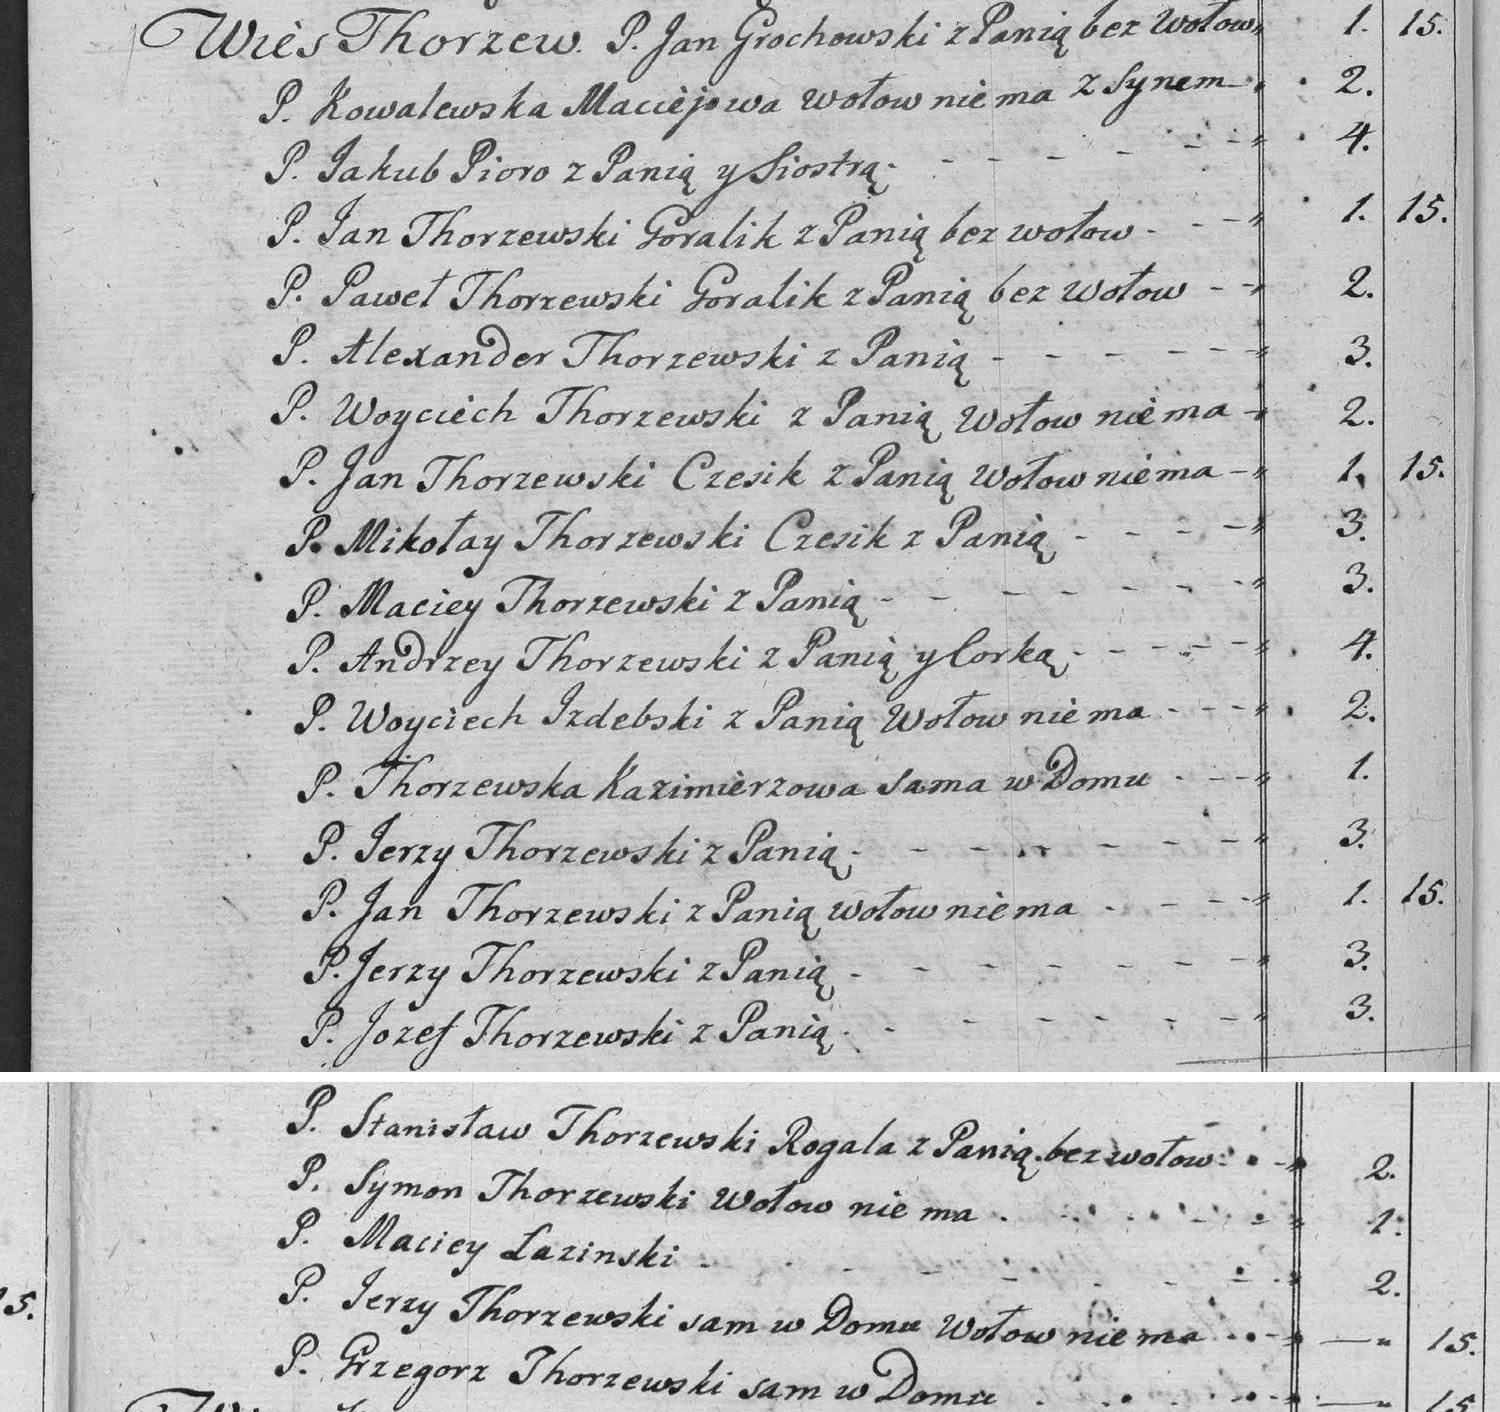 Wieś Thorzew. P. Jan Grochowski z Panią bez Wołow 1. 15.
P. Kowalewska Maciejowa wołow niema z Synem 2.
P. Jakub Pioro z Panią y Siostrą 4.
P. Jan Thorzewski Goralik z Panią bez wołow 1. 15.
P. Paweł Thorzewski Goralik z Panią bez Wołow 2.
P. Alexander Thorzewski z Panią 3.
P. Woyciech Thorzewski z Panią Wołow niema 2.
P. Jan Thorzewski Czesik z Panią Wołow niema 1. 15.
P. Mikołay Thorzewski Czesik z Panią 3.
P. Maciey Thorzewski z Panią 3.
P. Andrzey Thorzewski z Panią y Corką 4.
P. Woyciech Izdebski z Panią Wołow niema 2.
P. Thorzewska Kazimierzowa sama w Domu 1.
P. Jerzy Thorzewski z Panią 3.
P. Jan Thorzewski z Panią wołow niema 1. 15.
P. Jerzy Thorzewski z Panią 3.
P. Jozef Thorzewski z Panią 3.
P. Stanisław Thorzewski Rogala z Panią bez wołow 2.
P. Symon Thorzewski Wołow nie ma 1.
P. Maciey Łazinski 2.
15.
P. Jerzy Thorzewski sam w Domu Wołow niema — " 15.
P. Grzegorz Thorzewski sam w Domu — " 15